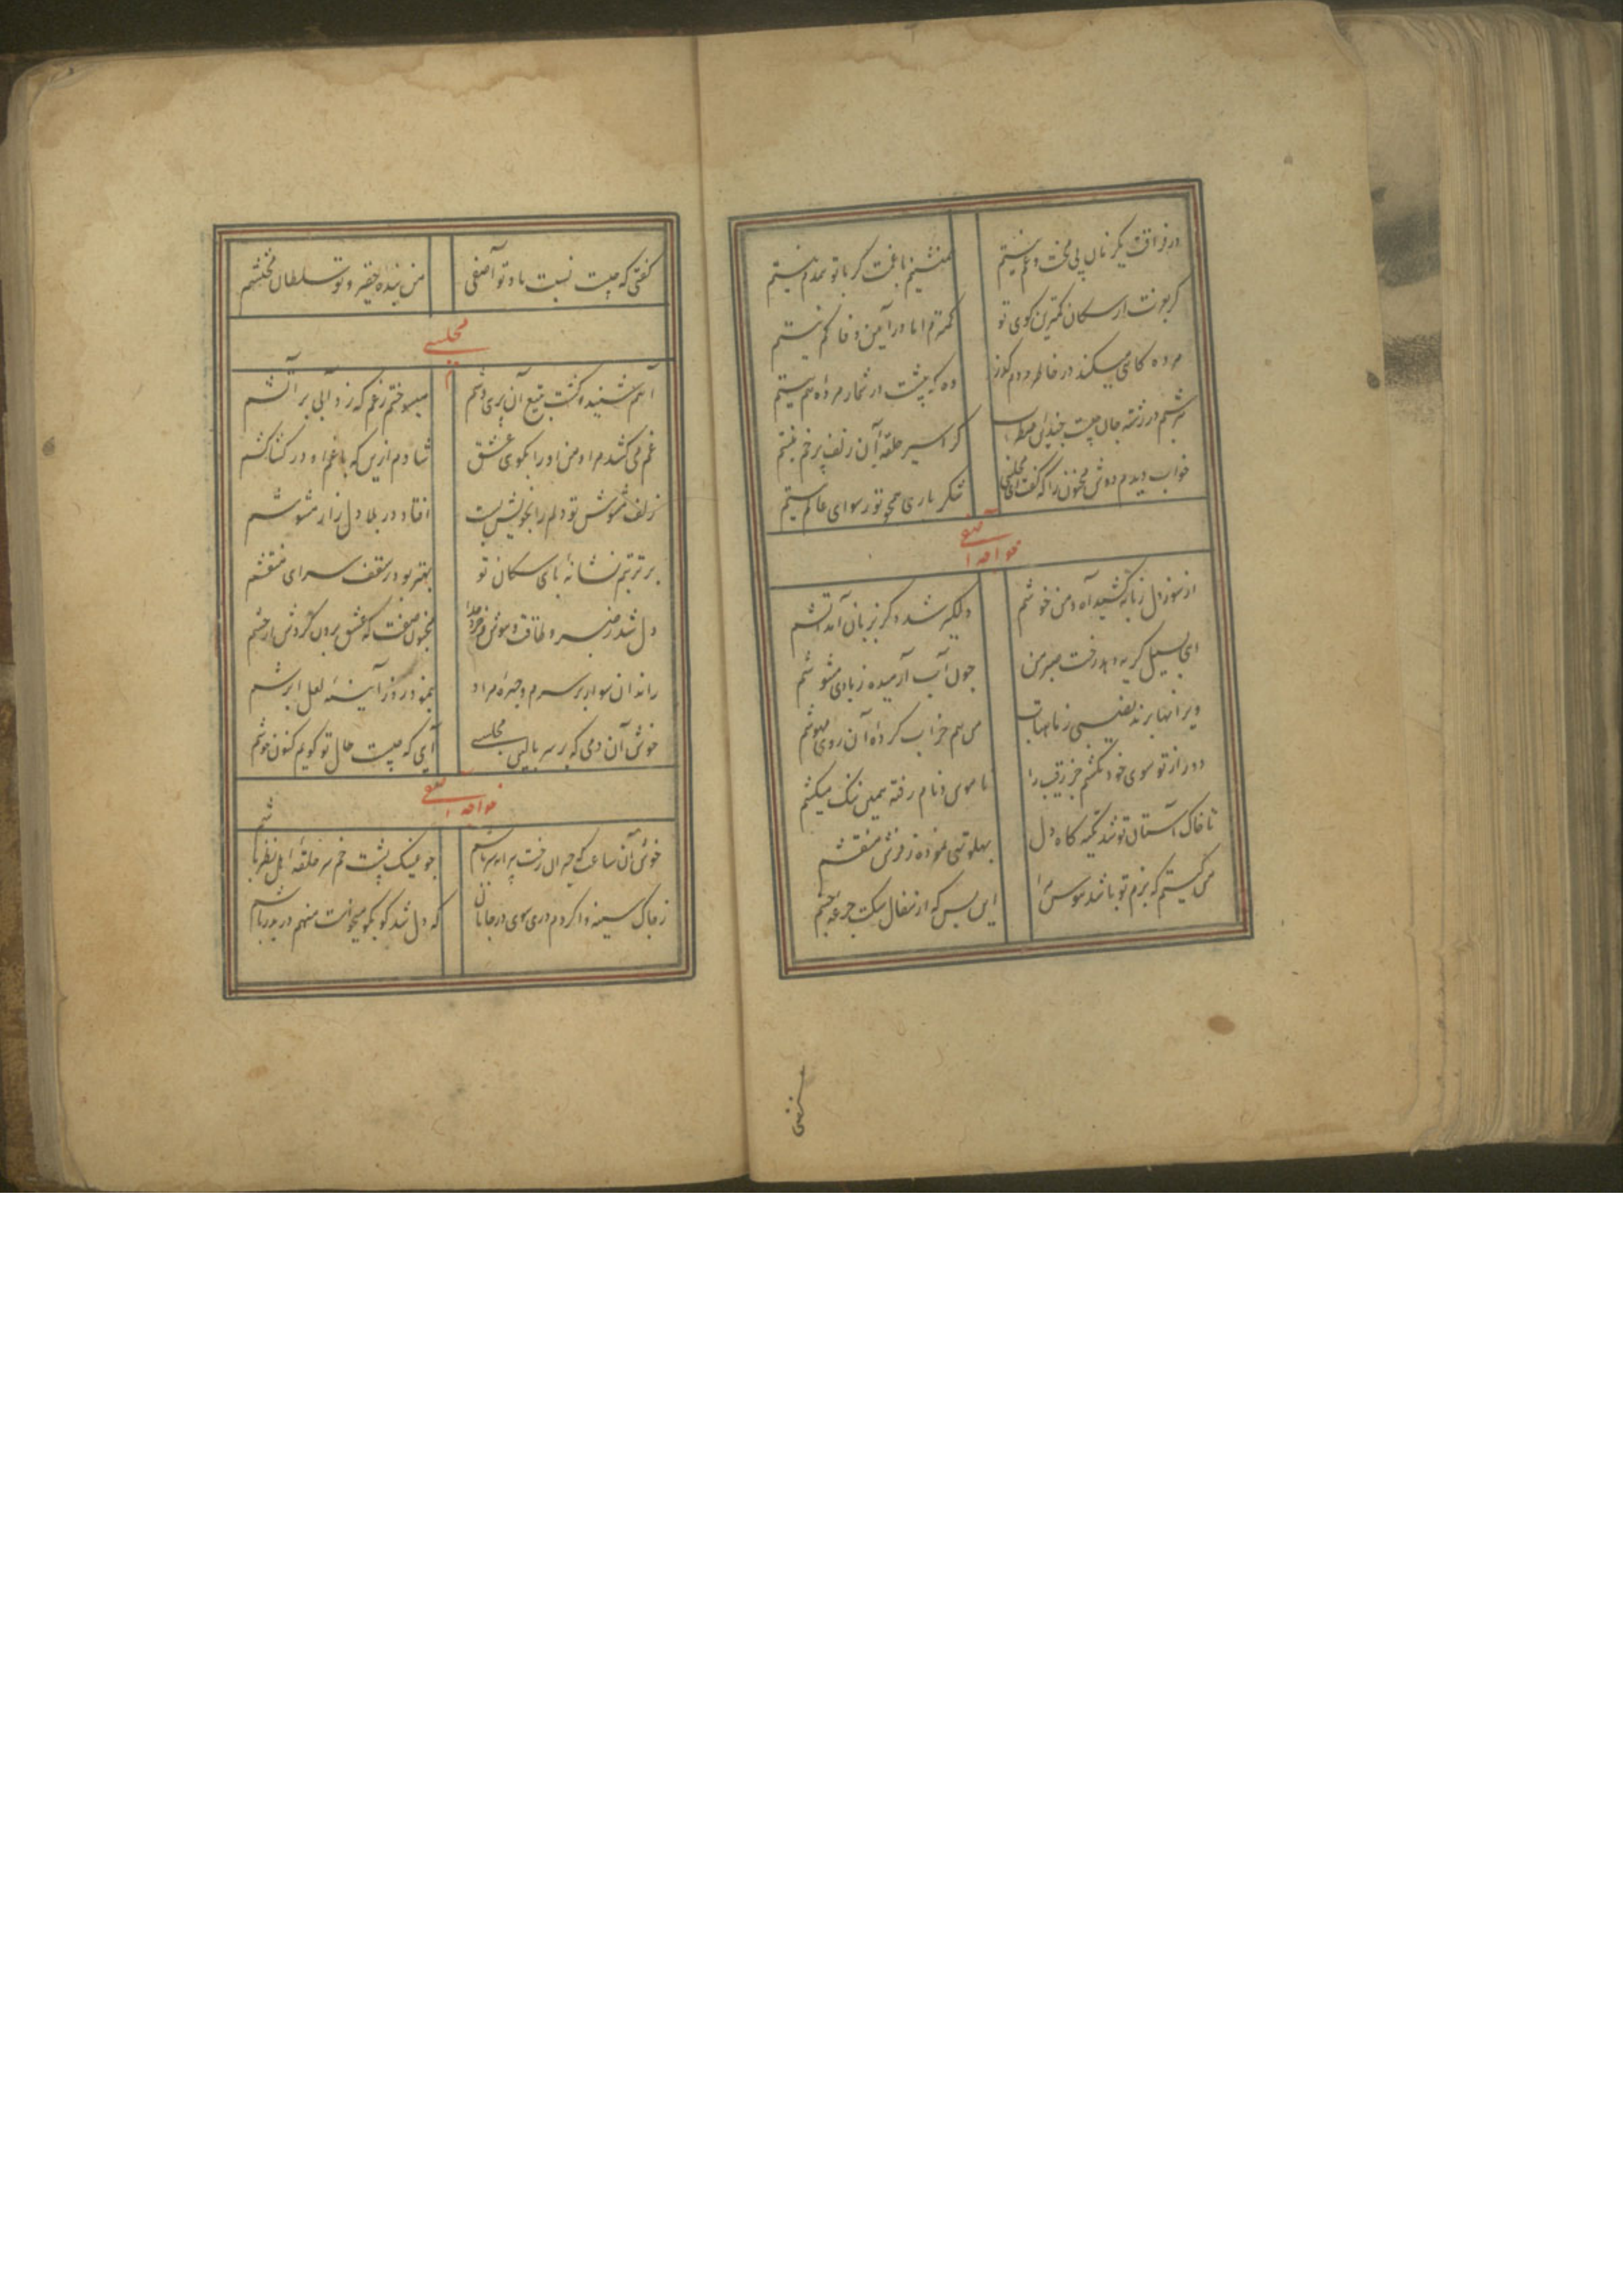 در فراقت یکزمان بی محنت و غم نیستم
همنشینم با غمت گر با تو همدم نیستم
گر بصورت از سگان کمترین کوی تو
کمترم اما در آیین وفا کم نیستم
مرده کامی میکند در خاطر
وه که پیشت در شمار مرده هم نیستم
در رشته جان چیست چندین اضطراب
گر اسیر حلقه آن زلف پر خم نیستم
خواب دیدم دوش مجنون را که گفت ای مجلسی
شکر باری همچو تو رسوای عالم نیستم
خواجه آصفی
از سوز دل زبانه کشید آه و من خوشم
دلگیر شد و گر بزبان آمد آتشم
ای سیل گریه رخت صبر من
چون آب آرمیده ز بادی مشوشم
ویرانها برند نصیبی ز ماهتاب
من هم خراب کرده آن روی مهوشم
دور از تو سوی خود نکشم جز رقیب را
ناموس و نام رفته همین ننگ میکشم
تا خاک آستان تو شد تکیه گاه دل
پهلو تهی نموده ز فرش منقشم
من کیستم که بزم تو باشد هوس مرا
این بس که از سفال سگت جرعه میچشم
گفتی که چیست نسبت ما و تو آصفی
من بنده حقیر و تو سلطان محتشم
مجلسی
آهم شنید و کشت بتیغ آن پری وشم
میسوختم ز غم که زد آبی بر آتشم
غم می کشد مرا و من او را بکوی عشق
شادم ازین که با غم او در کشاکشم
زلف مشوش تو دلم را بخویش بست
افتاد در بلا دل زار مشوشم
بر تربتم نشانه پای سگان تو
بهتر بود ز سقف سرای منقشم
دل شد ز صبر و طاقت و هوش و خرد جدا
مجنون صفت که عشق برون کرد
راند آن سوار بر سرم و چهره مراد
بنمود روز آینه لعل ابرشم
خوش آن دمی که بر سر بالین مجلسی
آیی که چیست حال تو گویم کنون خوشم
خواجه آصفی
خوش آن ساعت که حیران رخت
چو عینک پشت خم سر حلقه اهل نظر باشم
ز چاک سینه وا کردم دری سوی در جانان
که دل شد کو بکو میخواست منهم در بدر باشم